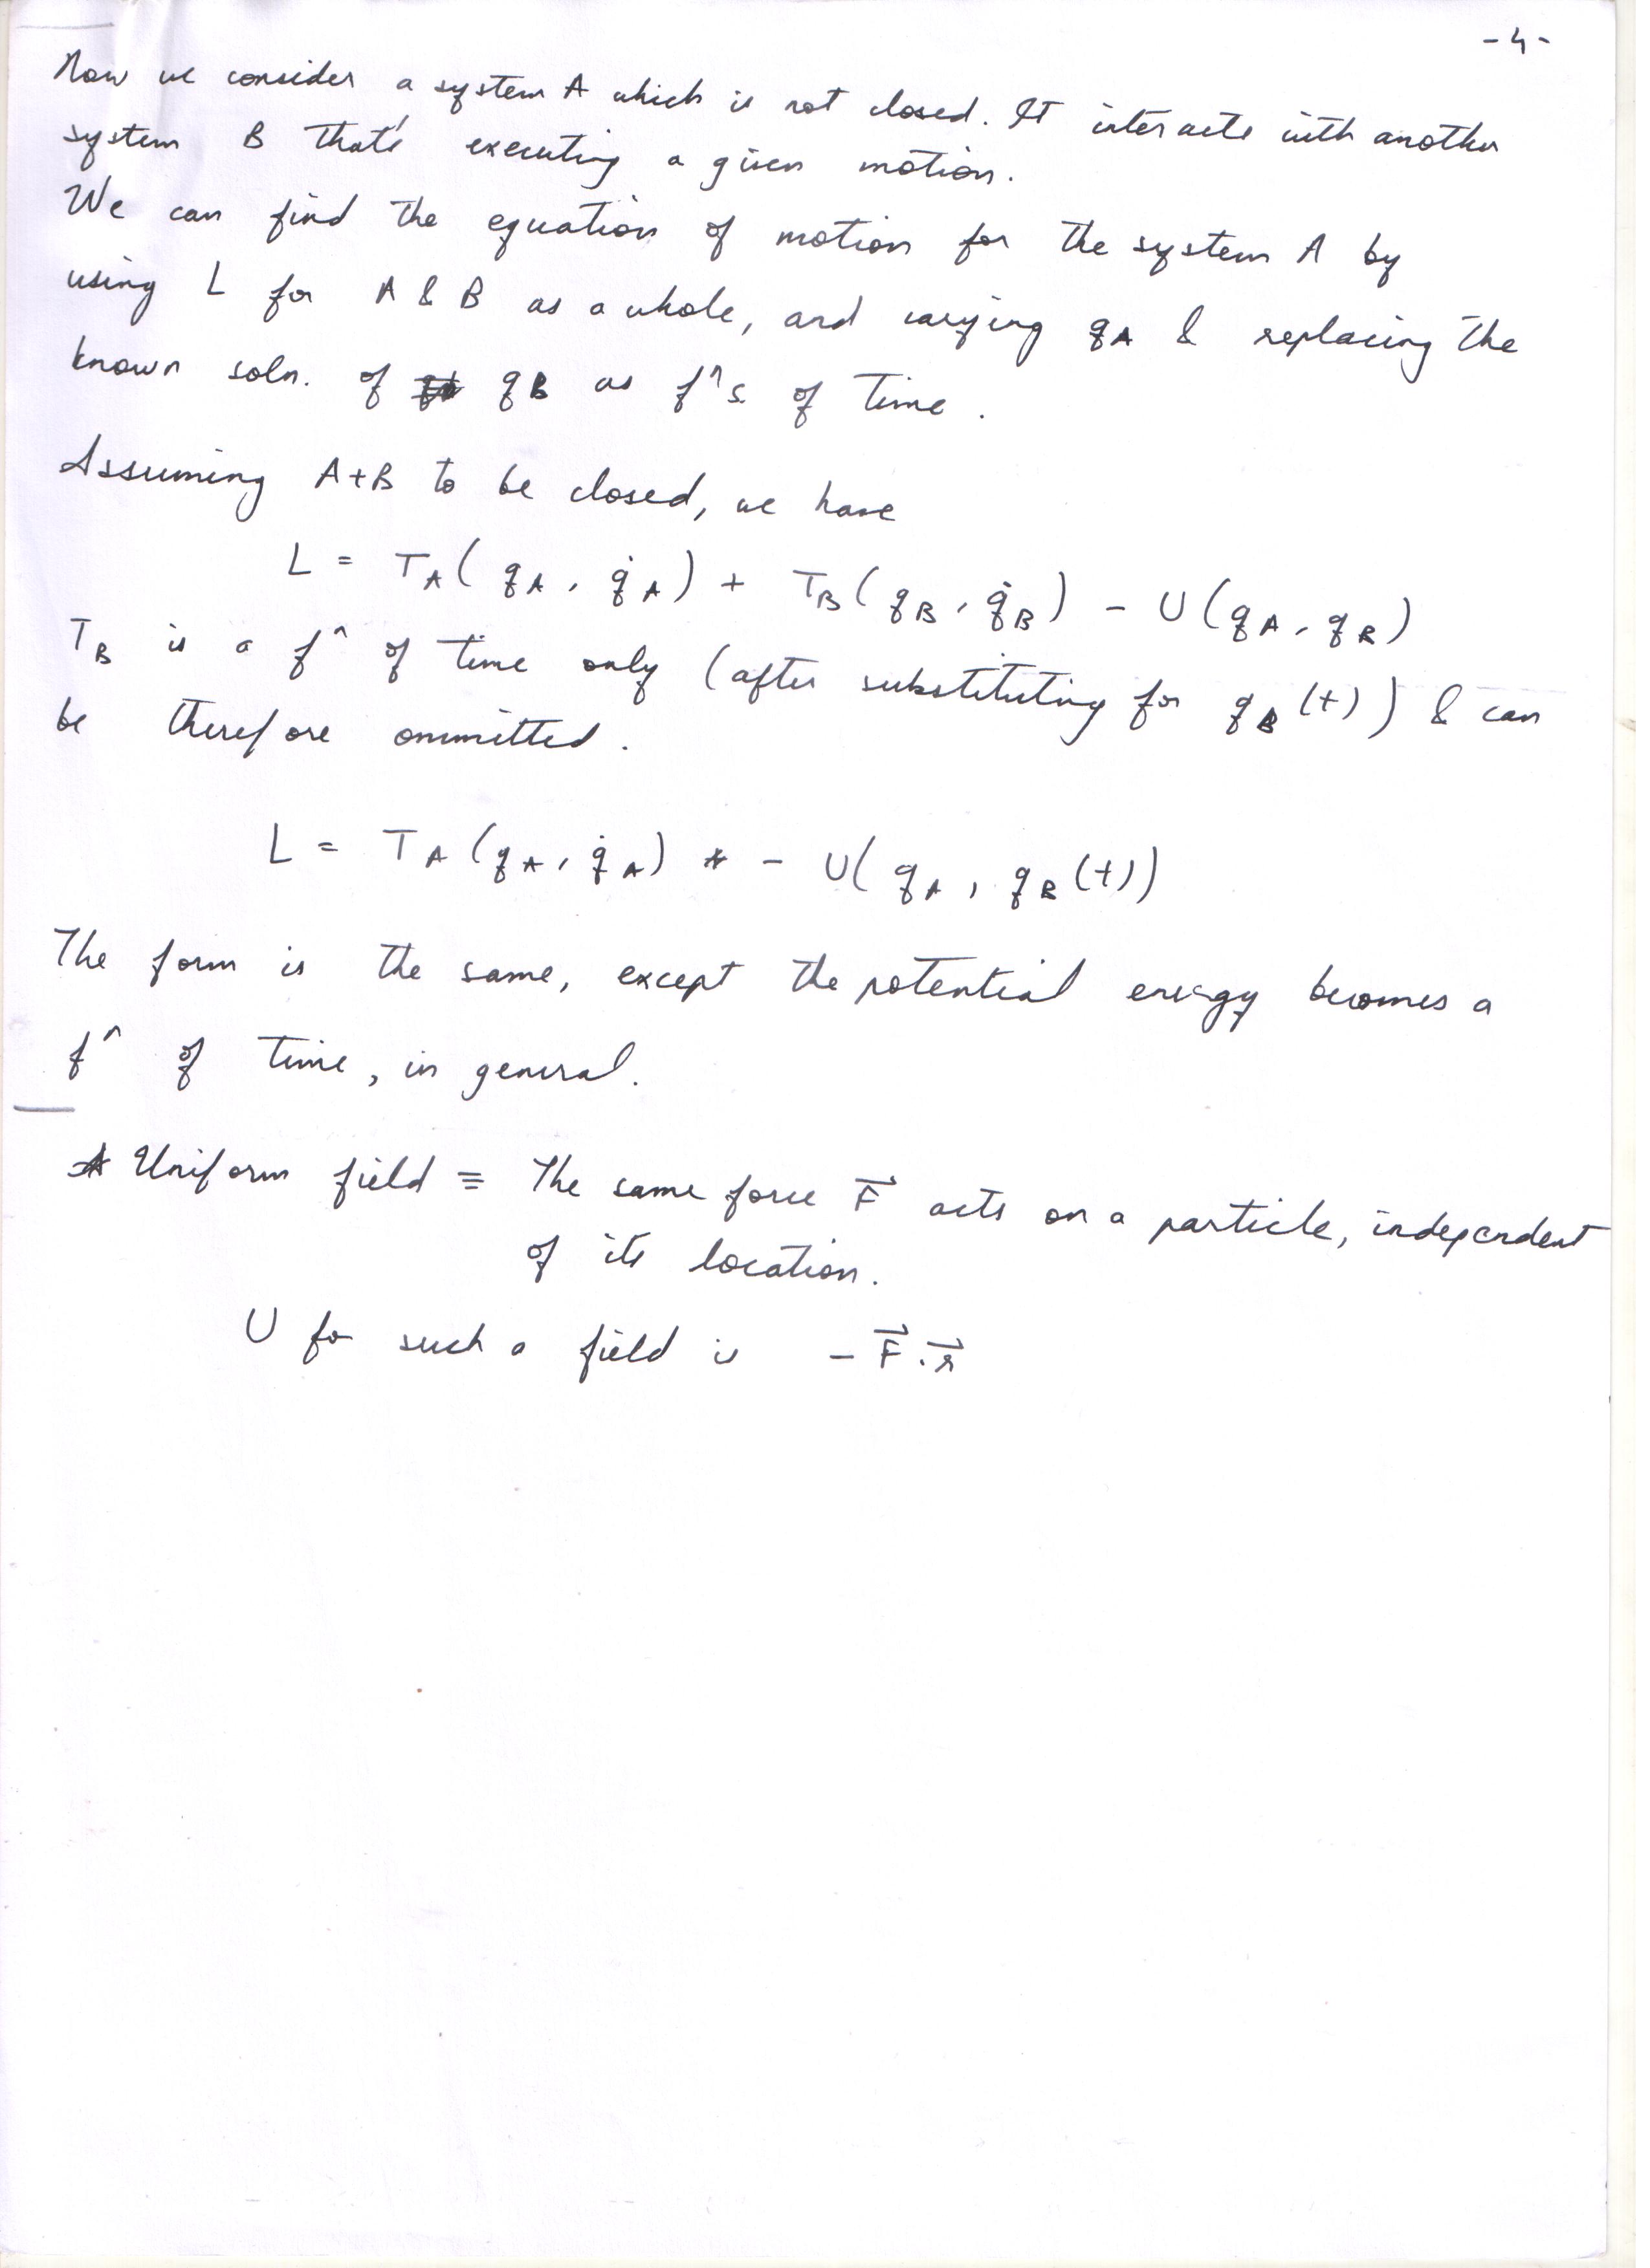 -4-
Now we consider a system A which is not closed. It interacts with another
system B that's executing a given motion.
We can find the equation of motion for the system A by
using L for A & B as a whole, and varying qA & replacing the
known soln. of qB as f^n s of time.
Assuming A+B to be closed, we have
L = T_A(q_A, q̇_A) + T_B(q_B, q̇_B) - U(q_A, q_B)
T_B is a f^n of time only (after substituting for q_B(t)) & can
be therefore ommitted.
L = T_A(q_A, q̇_A) - U(q_A, q_B(t))
The form is the same, except the potential energy becomes a
f^n of time, in general.
Uniform field ≡ The same force F⃗ acts on a particle, independent
of its location.
U for such a field is - F⃗ . r⃗